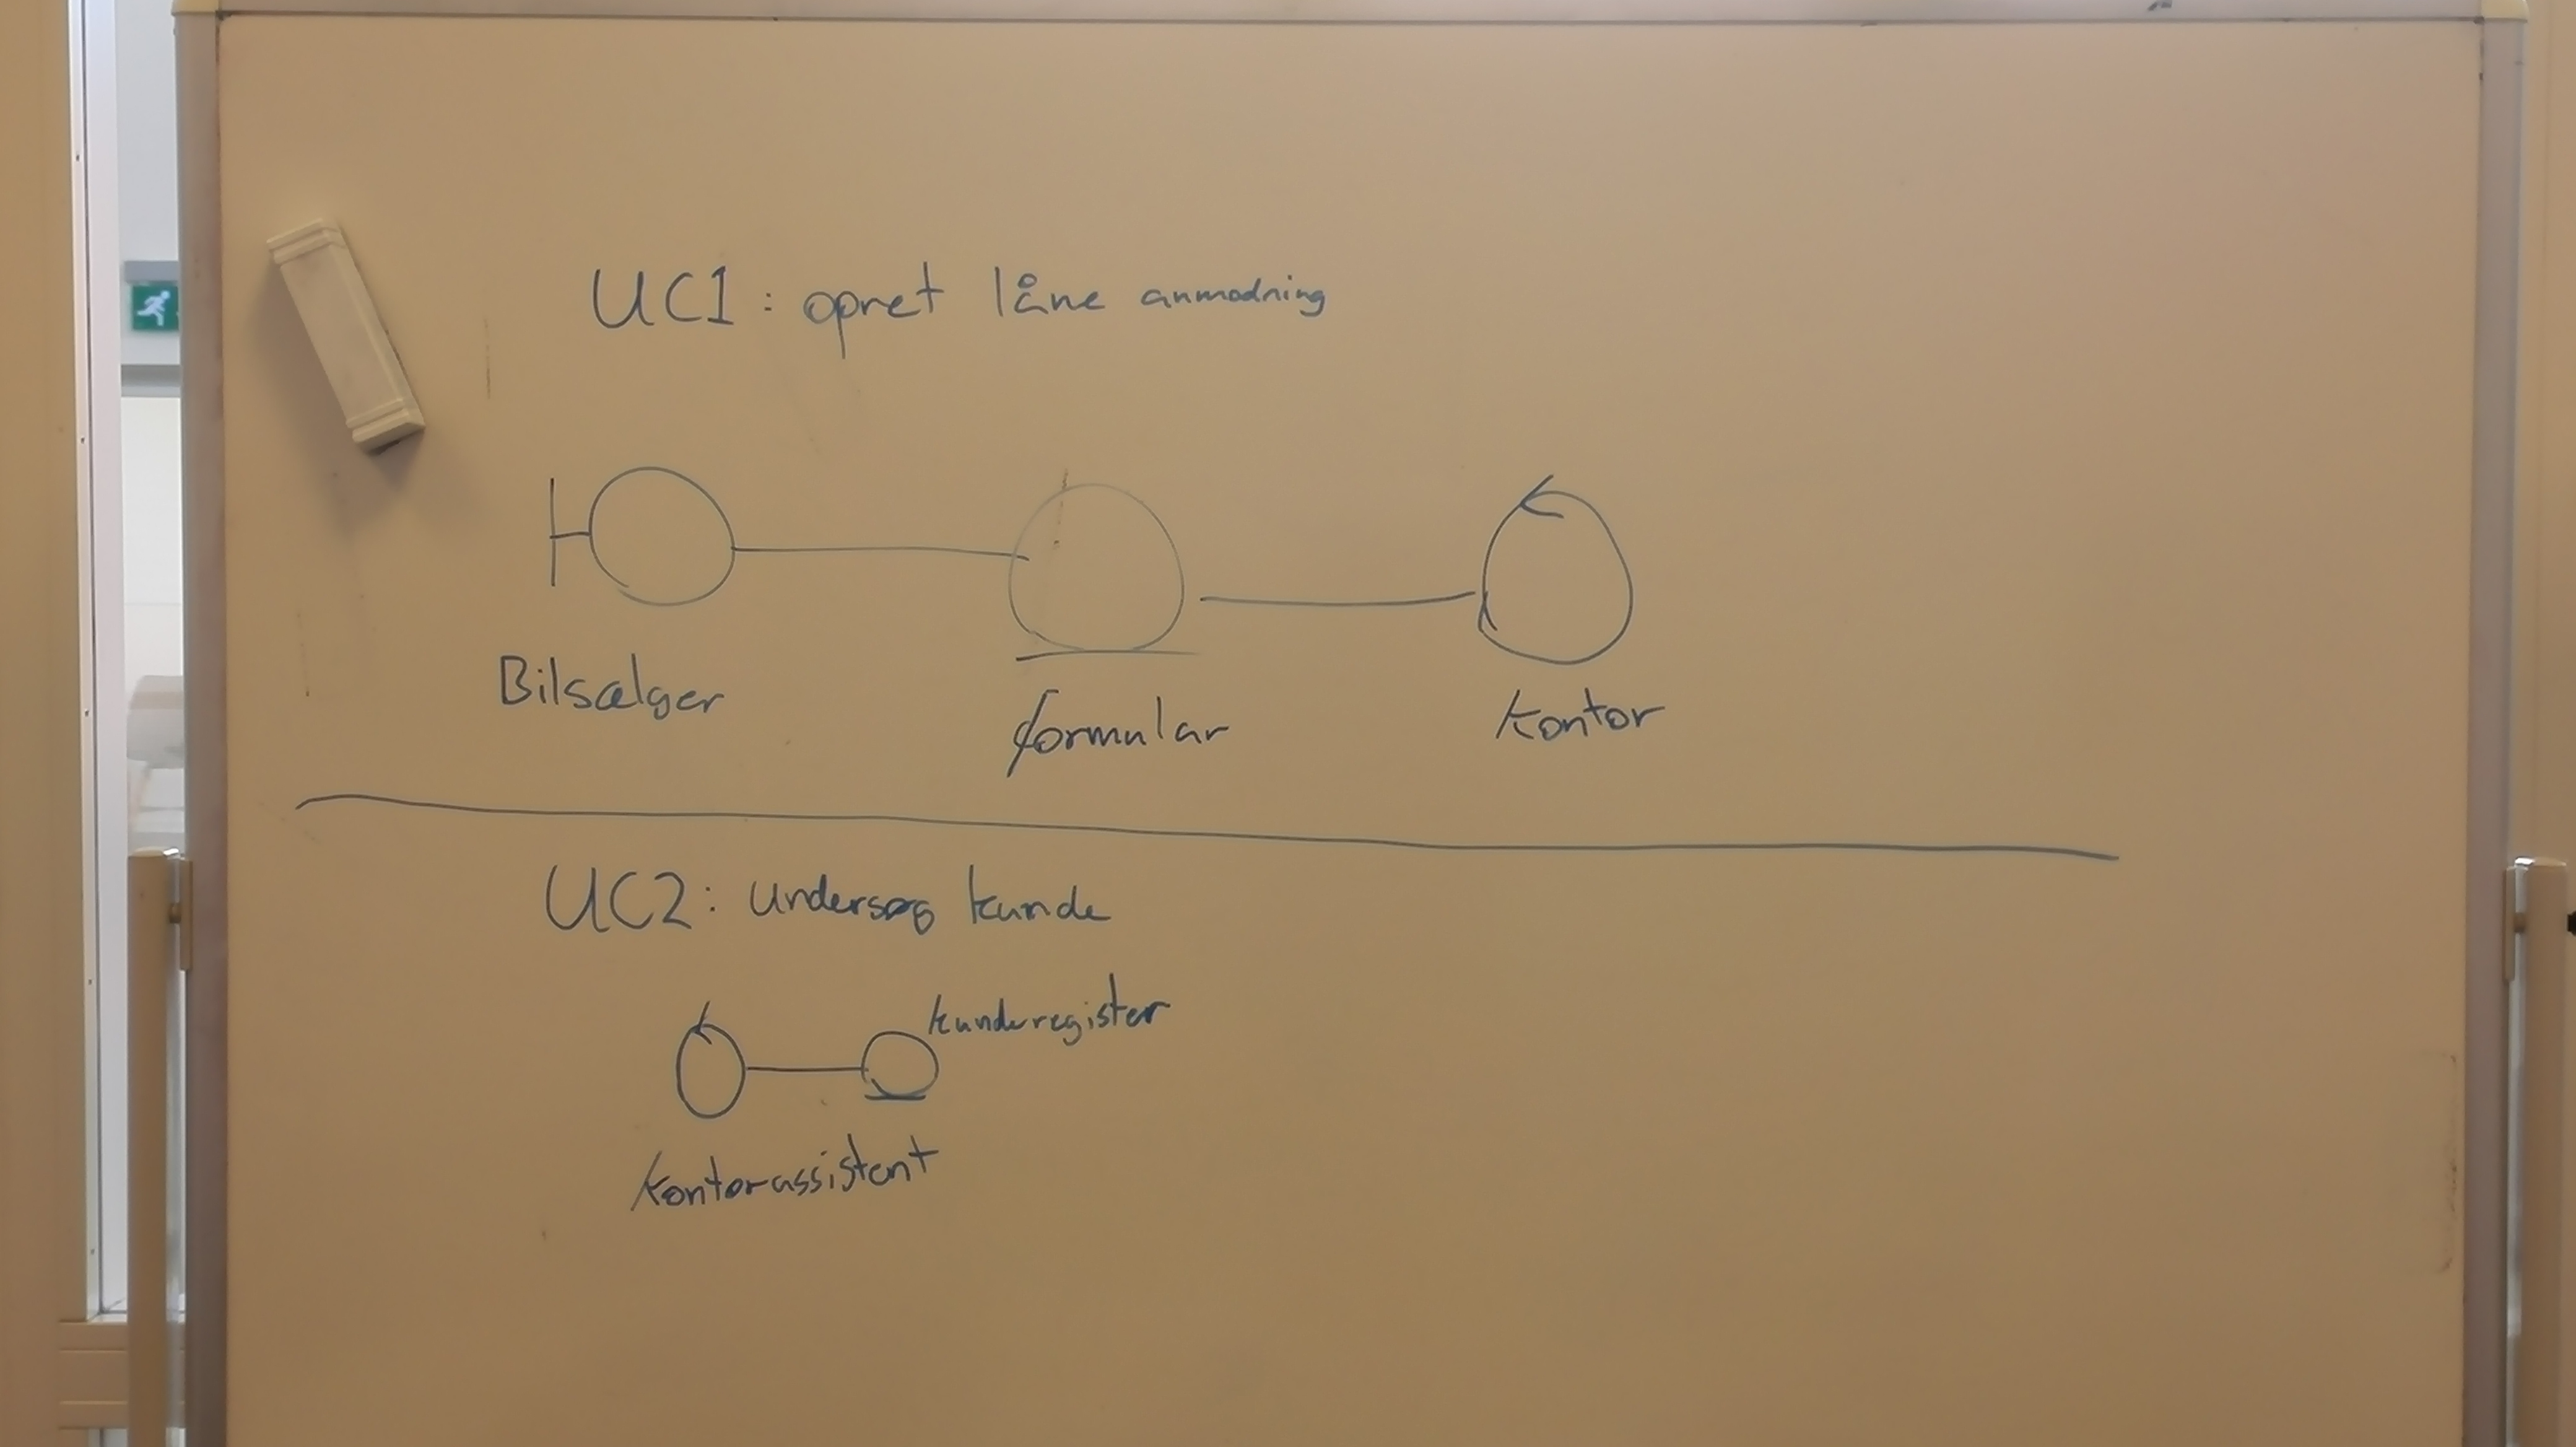 UC1: opret låne anmodning
Bilsælger
formular
kontor
UC2: Undersøg kunde
kunderegister
kontorassistent